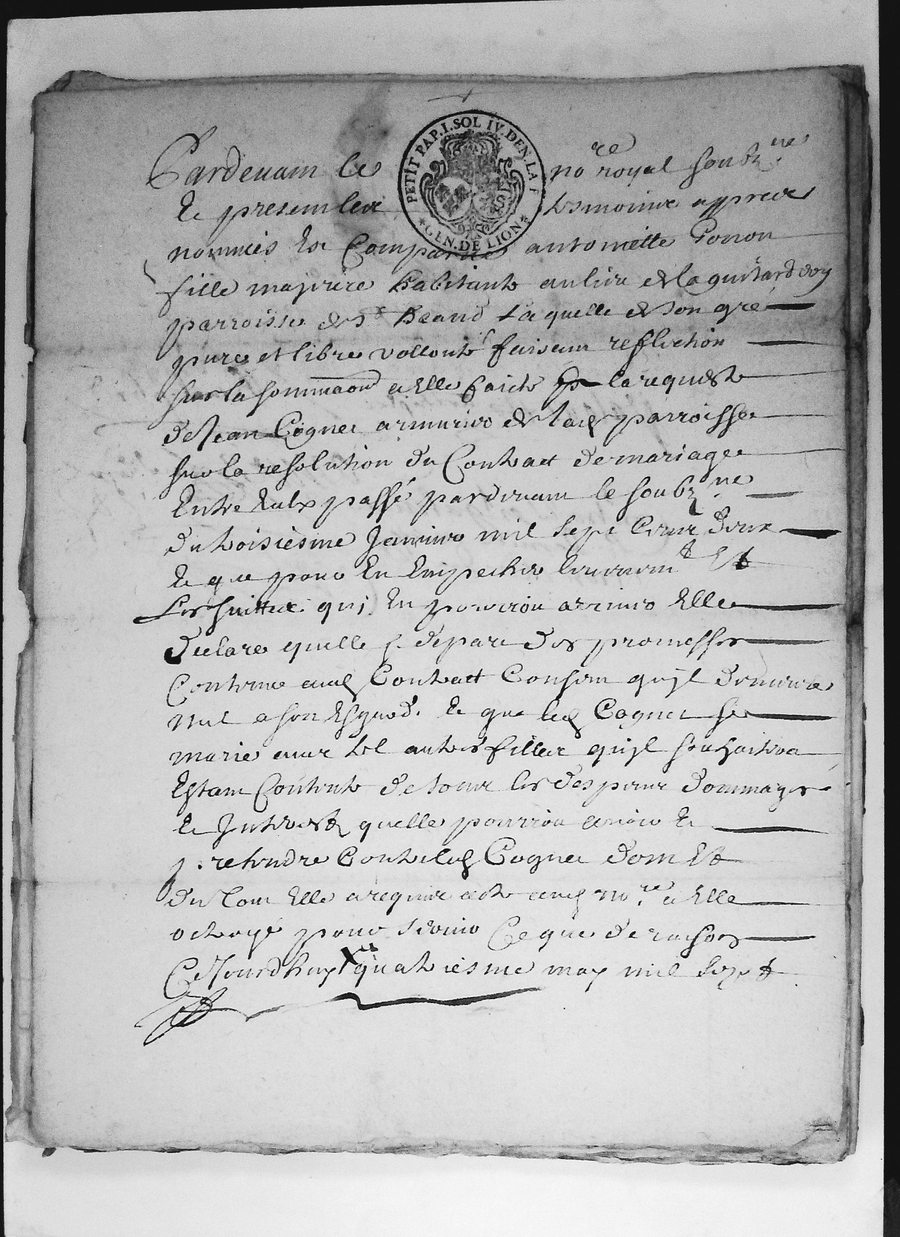 PETIT PAP. I. SOL IV. DEN. LA F.
* GEN. DE LION *
Pardevant le no.re royal soubz.ne
Et presence des tesmoins appres
nommés Est Comparüe antoinette
fille majeure habitante au lieu de la
parroisse de St heand Laquelle de son gré
pure et libre vollonté faisant reflection
sur la sommaon a Elle faicte a la requeste
de Jean Cognet armurier de lad parroisse
sur la resolution du Contract de mariage
Entre Eulx passé pardevant le soubz.ne
du troisiesme Janvier mil sept Cent deux
Et que pour En Empecher levenemt Et
Les suittes qui En pourroit arriver Elle
declare quelle se depart des promesses
Contenue aud Contract Consent quil demeure
nul a son Esgard. Et que led Cognet se
marie avec tel autre fille quil souhaitera
Estant Contente de tous les despens dommages
Et Interestz quelle pourroit avoir Et
pretendre Contre led Cognet dont Et
du tout Elle a requis acte aud no.re a Elle
octroyé pour servir Ce que de raison
Cejourdhuy quatriesme may mil sept